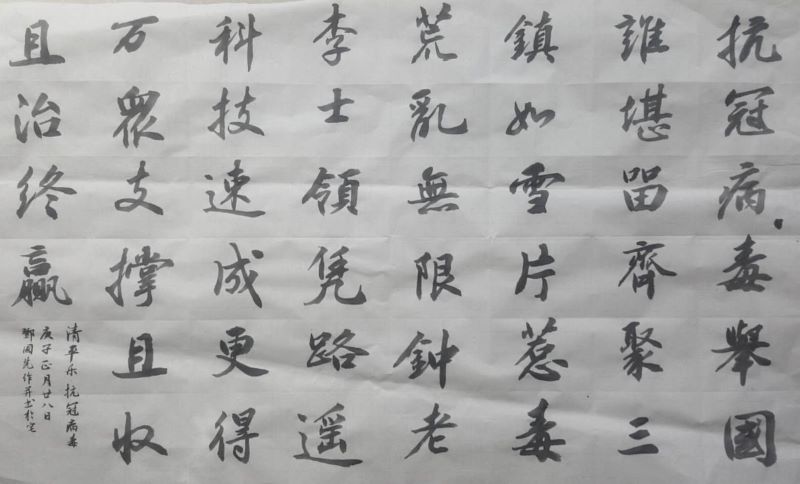 抗冠病毒舉國
誰堪留齊聚三
鎮如雪片惹毒
荒亂無限鈡老
李士領凭路遥
科技速成更得
万眾支撑且收
且治终赢
清平乐 抗冠病毒
庚子正月廿八日
鄧国先作并书於宅